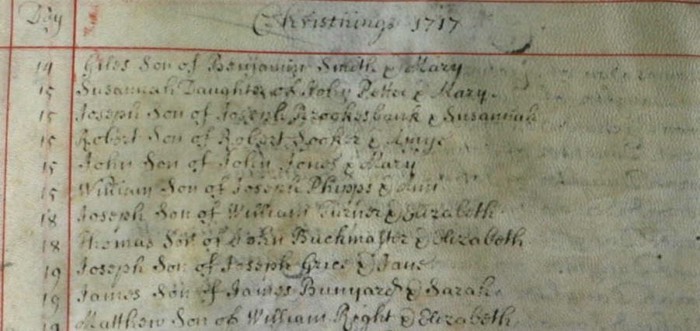 Day Christnings 1717
14 Giles Son of Benjamin Smith & Mary
15 Susannah Daughter of John Petter & Mary
15 Joseph Son of Joseph Brookesbank & Susannah
15 Robert Son of Robert Hooker &
15 John Son of John Jones & Mary
15 William Son of Joseph Phipps & Ann
18 Joseph Son of William Turner & Elizabeth
18 Thomas Son of John Buckmaster & Elizabeth
19 Joseph Son of Joseph Grice & Jane
19 James Son of James Bunyard & Sarah
19 Matthew Son of William Right & Elizabeth